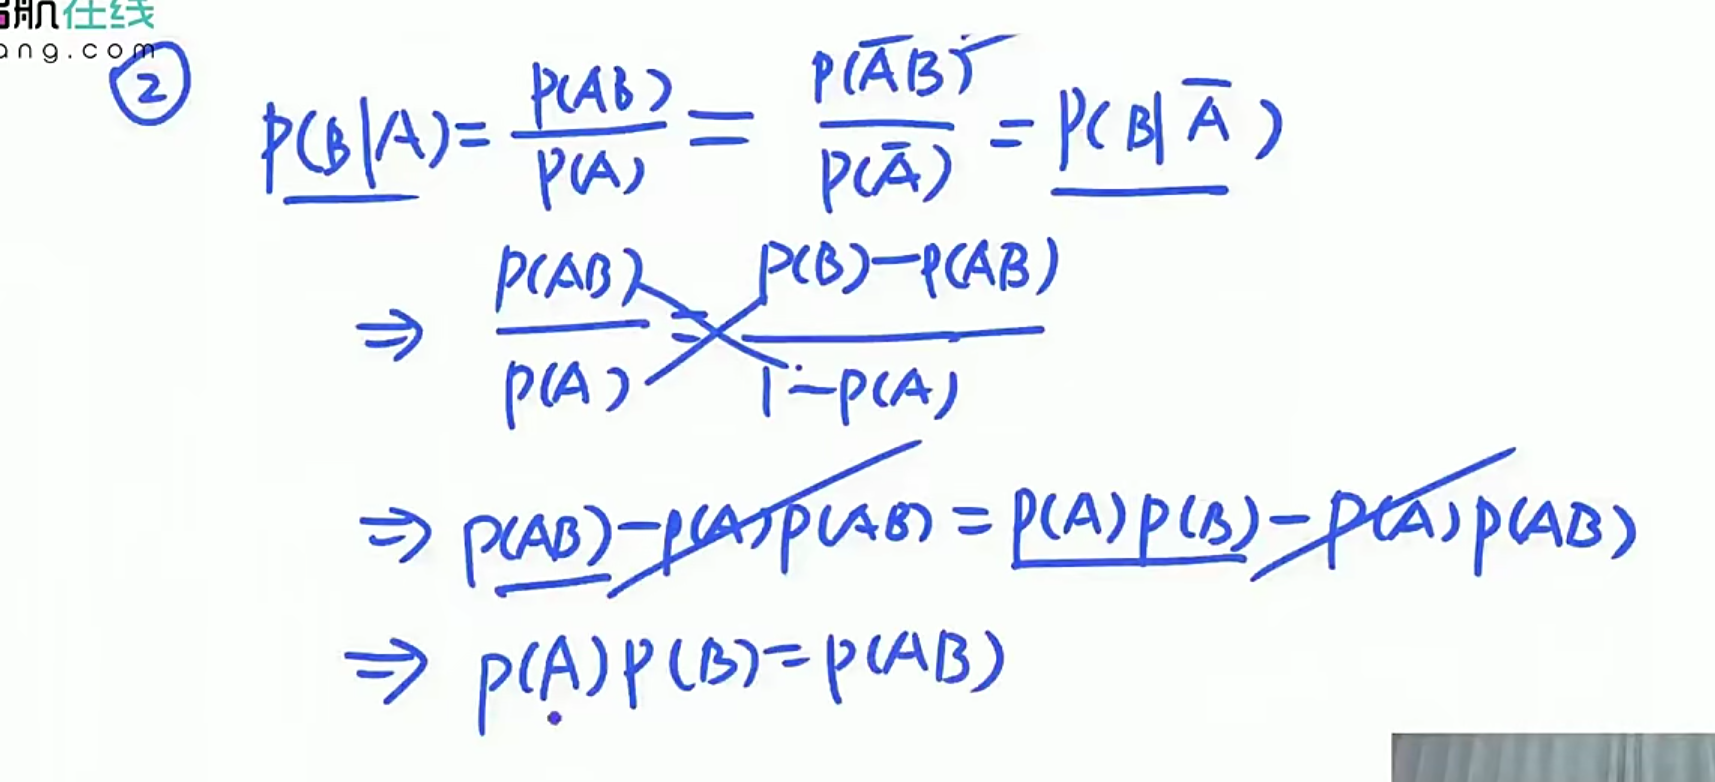 航在线
ang.com
② P(B|A) = P(AB)/P(A) = P(A̅B)/P(A̅) = P(B|A̅)
⇒ P(AB)/P(A) = (P(B)-P(AB))/(1-P(A))
⇒ P(AB)-P(A)P(AB) = P(A)P(B)-P(A)P(AB)
⇒ P(A)P(B)=P(AB)